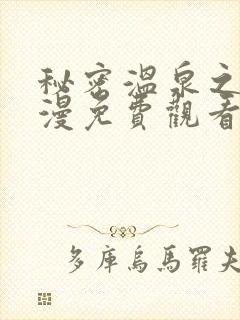 秘密溫泉之
漫免費觀看
多庫烏馬羅夫